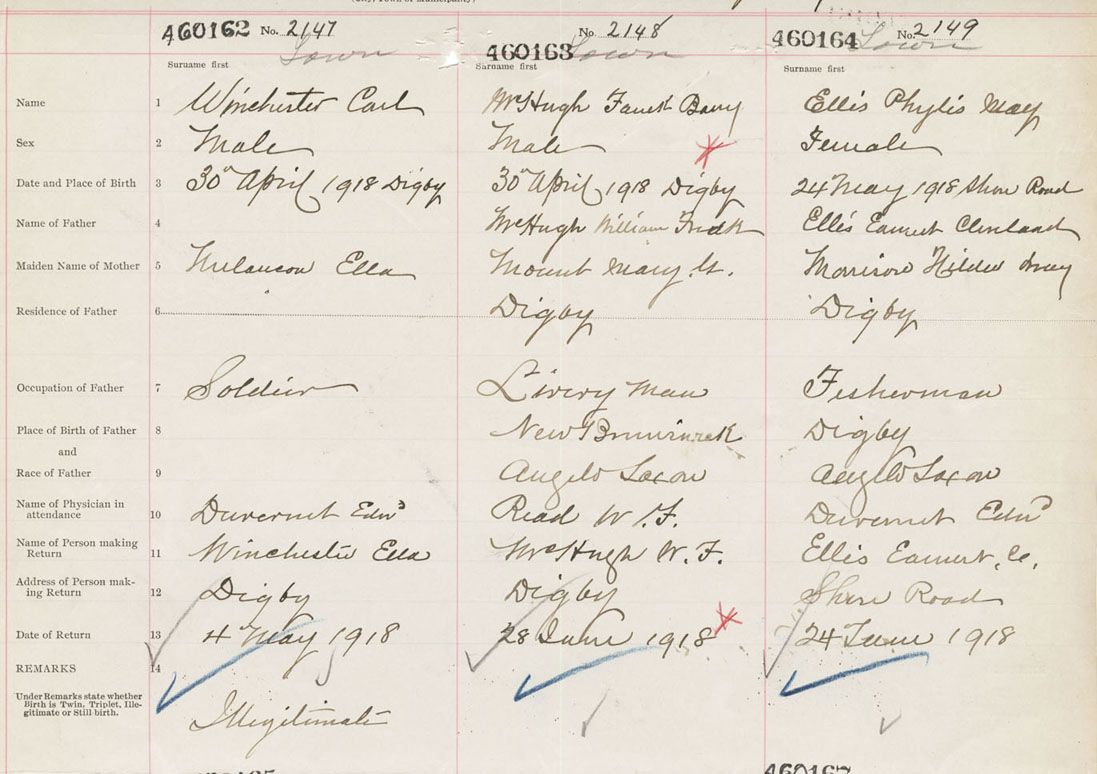 (City, Town or Municipality)
460162 No. 2147
Town
460163 No. 2148
Town
460164 No. 2149
Town
Surname first
Surname first
Surname first
Name 1 Winchester Carl
McHugh Barry
Ellis Phylis May
Sex 2 Male
Male
Female
Date and Place of Birth 3 30" April 1918 Digby
30" April 1918 Digby
24 May 1918 Shore Road
Name of Father 4
McHugh William Fredk
Ellis Earnest Cleveland
Maiden Name of Mother 5 Melanson Ella
Mount Mary.
Morrison Hilda
Residence of Father 6
Digby
Digby
Occupation of Father 7 Soldier
Livery Man
Fisherman
Place of Birth of Father 8
New Brunswick
Digby
and
Race of Father 9
Anglo Saxon
Anglo Saxon
Name of Physician in
attendance 10 Duvernet Edwd
Read W. F.
Duvernet Edwd
Name of Person making
Return 11 Winchester Ella
McHugh W. F.
Ellis Earnest. C.
Address of Person mak-
ing Return 12 Digby
Digby
Shore Road
Date of Return 13 4 May 1918
28 June 1918
24 June 1918
REMARKS 14
Under Remarks state whether
Birth is Twin, Triplet, Ille-
gitimate or Still-birth.
Illegitimate